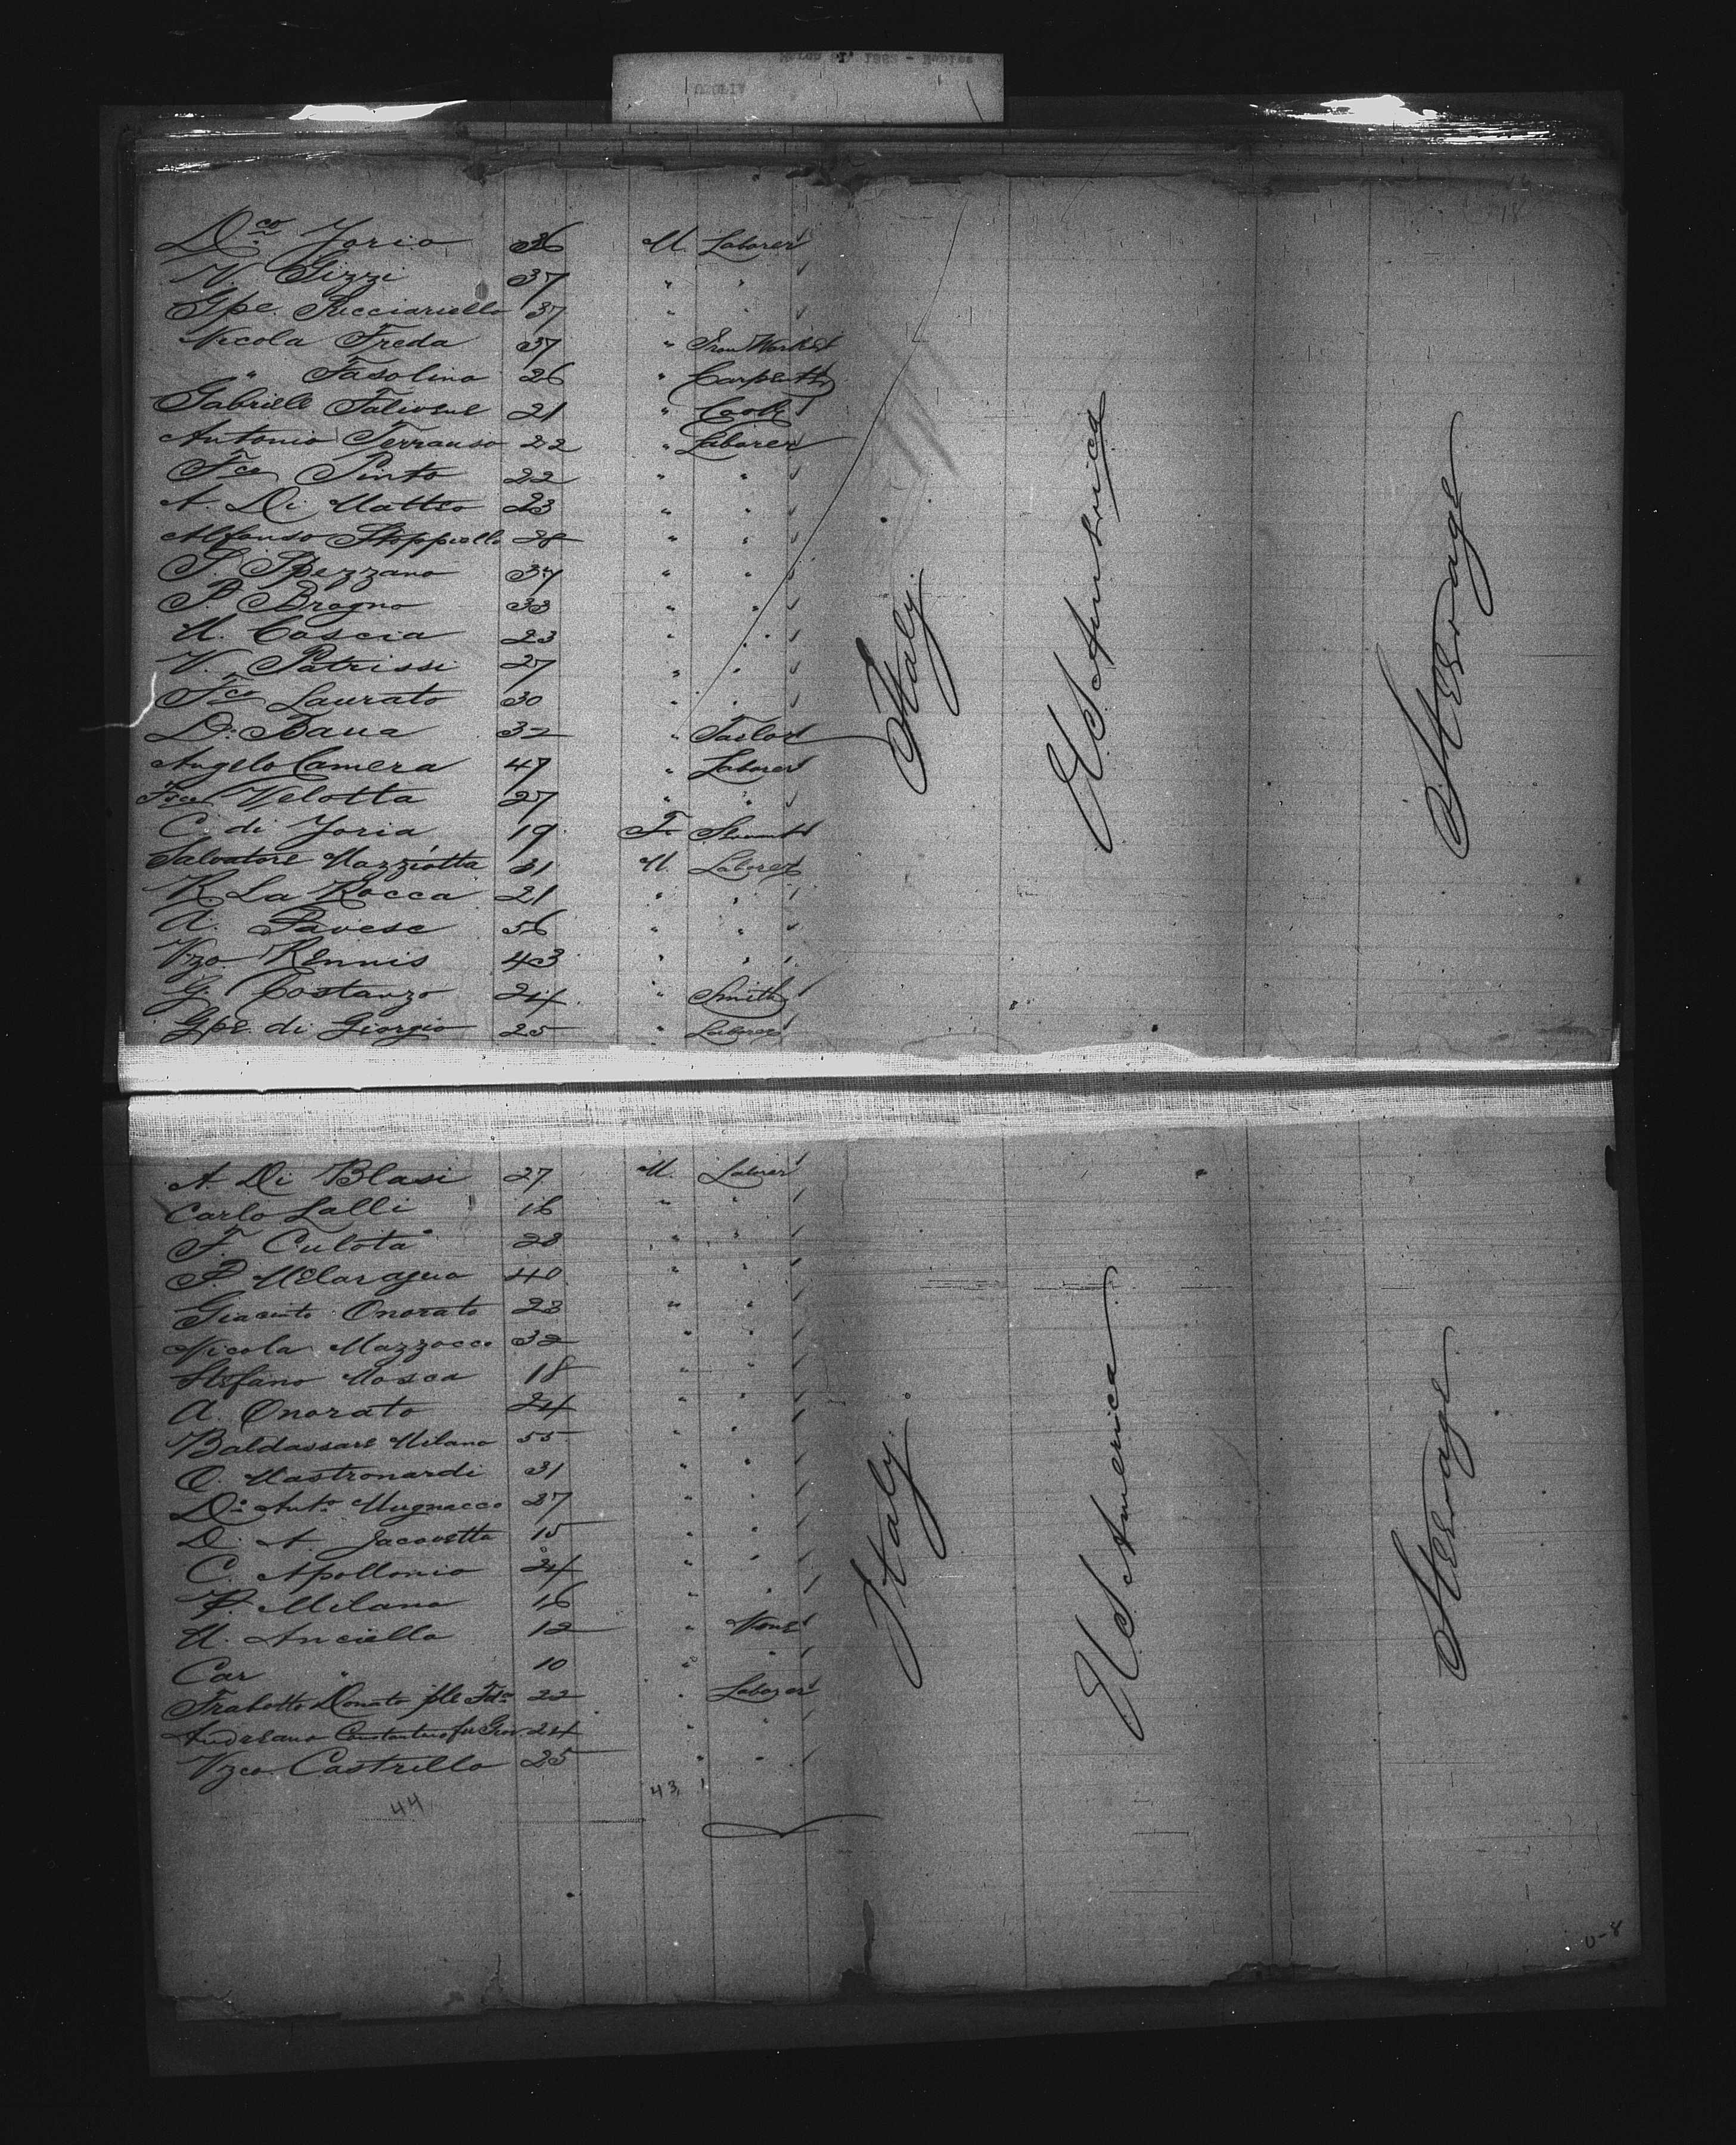 D.co Jorio 36 M. Laborer
N. Sizzi 37 " "
Gpe. Ricciariello 37 " "
Nicola Freda 37 " Iron Worker
" Fasolino 26 " Carpenter
Gabriele 21 " Cook
Antonio 22 " Laborer
Fco Pinto 22 " "
A. Di Matteo 23 " "
Alfonso Stoppiello 28 " "
S Spezzano 37 " "
P. Brogno 33 " "
M. Coscia 23 " "
V. Patrissi 27 " "
Fco Laurato 30 " "
D. 32 " Tailor
Angelo Camera 47 " Laborer
Fsco Velotta 27 " "
C. di Joria 19 F Servant
Salvatore Mazziotta 31 M. Laborer
R La Rocca 21 " "
A. Pavese 56 " "
Vzo Rennis 43 " "
G. Costanzo 24 " Smith
Gpe. di Giorgio 25 " Laborer
Italy.
U.S. America
Steerage
A. Di Blasi 27 M. Laborer
Carlo Lalli 16 " "
F. Culota 28 " "
P. Melaragno 40 " "
Giacinto Onorato 28 " "
Nicola Mazzocco 32 " "
Stefano Mosca 18 " "
A. Onorato 24 " "
Baldassare Milano 55 " "
O. Mastronardi 31 " "
D. Anto Mugnacco 27 " "
D. A. Jacovetta 15 " "
C. Apollonio 24 " "
P. Milano 16 " "
M. Anciello 12 " None
Car " 10 " "
Frabotto Donato 22 " Laborer
Andreano Costantino fu Giov. 24 " "
Vzco Castrillo 25 " "
Italy.
U.S. America
Steerage
44 43 1
U-8